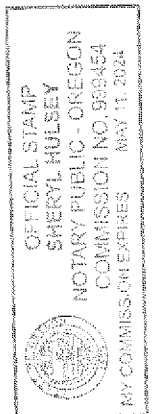 OFFICIAL STAMP
SHERYL HULSEY
NOTARY PUBLIC - OREGON
COMMISSION NO. 999454
MY COMMISSION EXPIRES MAY 11, 2024